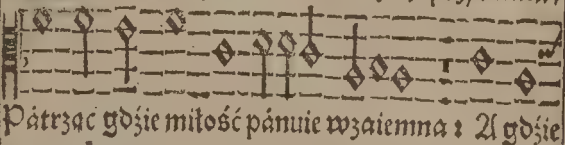 Pátrząc gdźie miłość pánuie wzaiemna : A gdźie